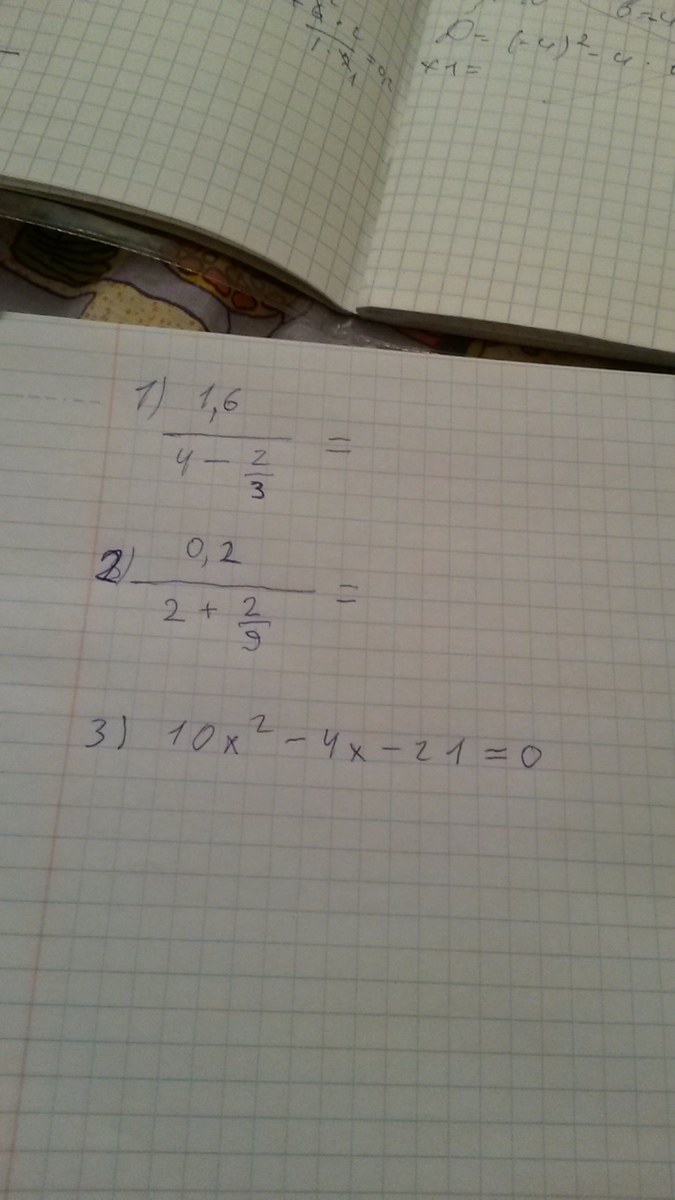 b=-4
D= (-4)² - 4 ·
x1=
1) 1,6
4 - 2/3 =
2) 0,2
2 + 2/9 =
3) 10x² - 4x - 21 = 0